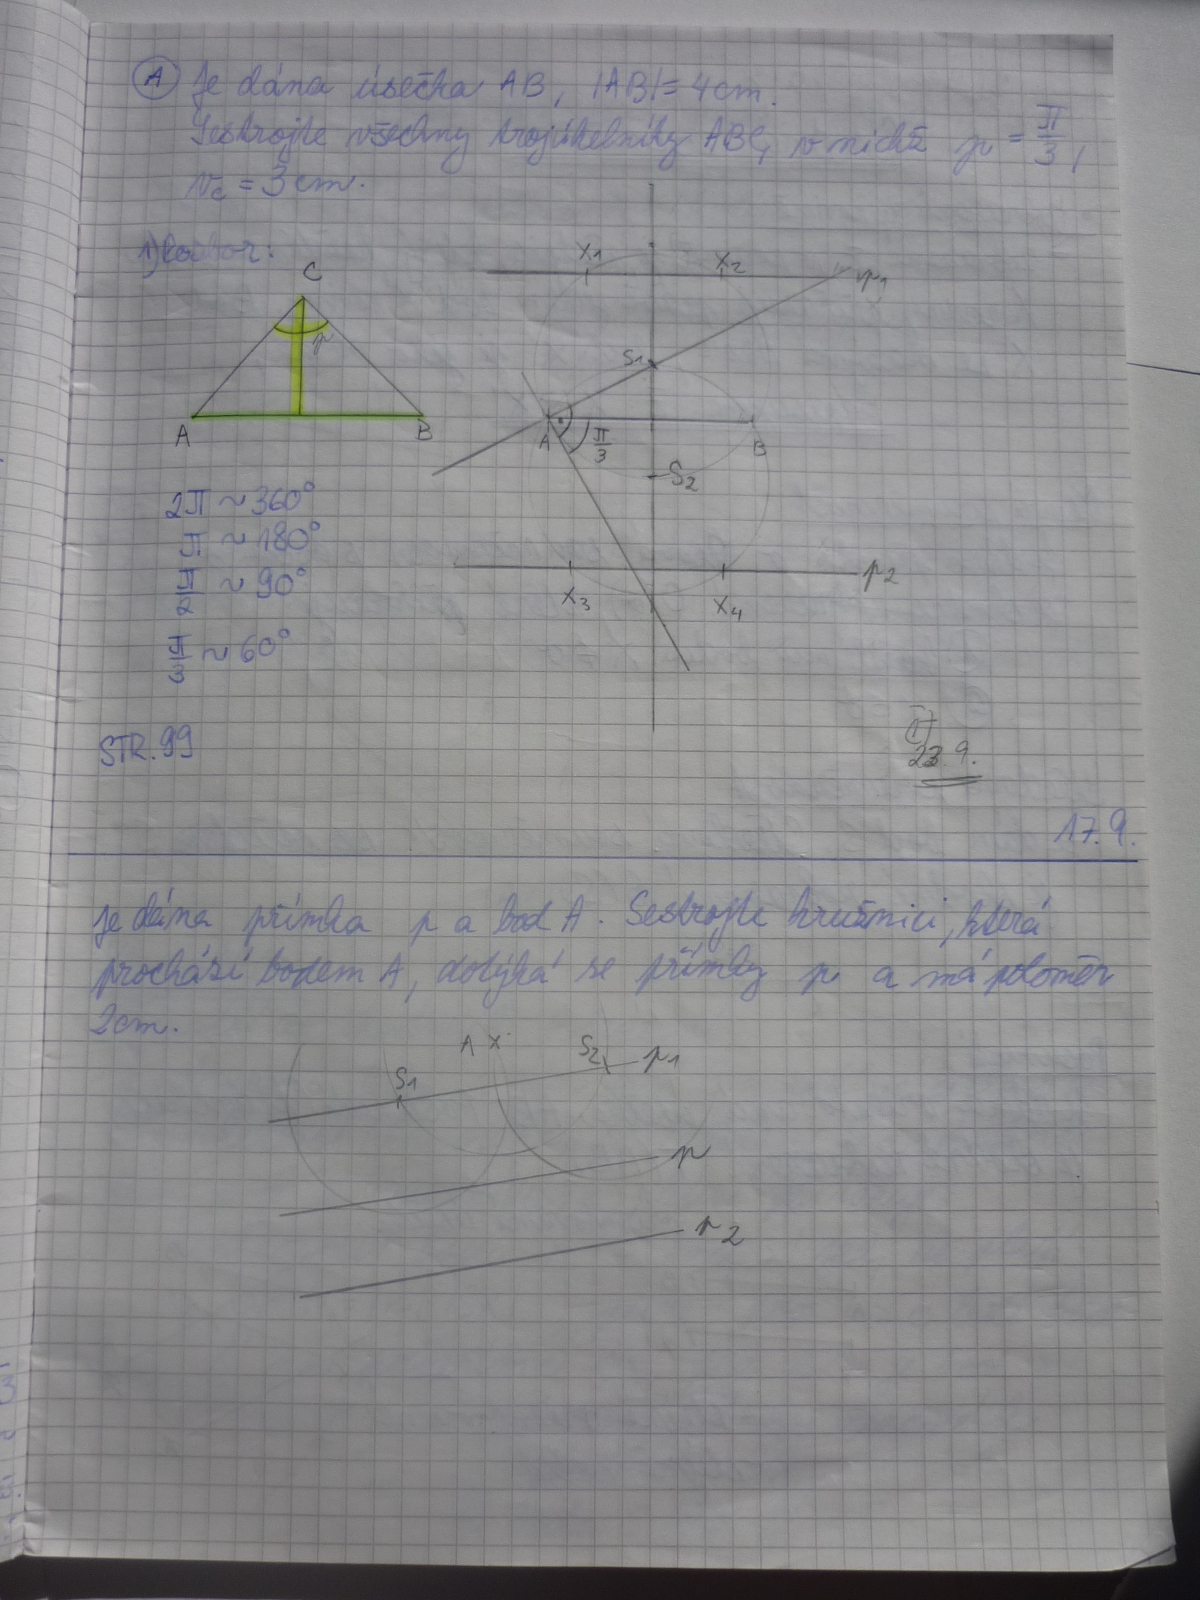 A Je dána úsečka AB, |AB| = 4cm.
Sestrojte všechny trojúhelníky ABC, v nichž γ = π/3,
vc = 3cm.
1) Rozbor:
C
γ
A
B
X1
X2
p1
S1
A
π/3
B
S2
p2
X3
X4
2π ~ 360°
π ~ 180°
π/2 ~ 90°
π/3 ~ 60°
STR. 99
23.9.
17.9.
Je dána přímka p a bod A. Sestrojte kružnici, která
prochází bodem A, dotýká se přímky p a má poloměr
2cm.
A
S2
p1
S1
p
p2